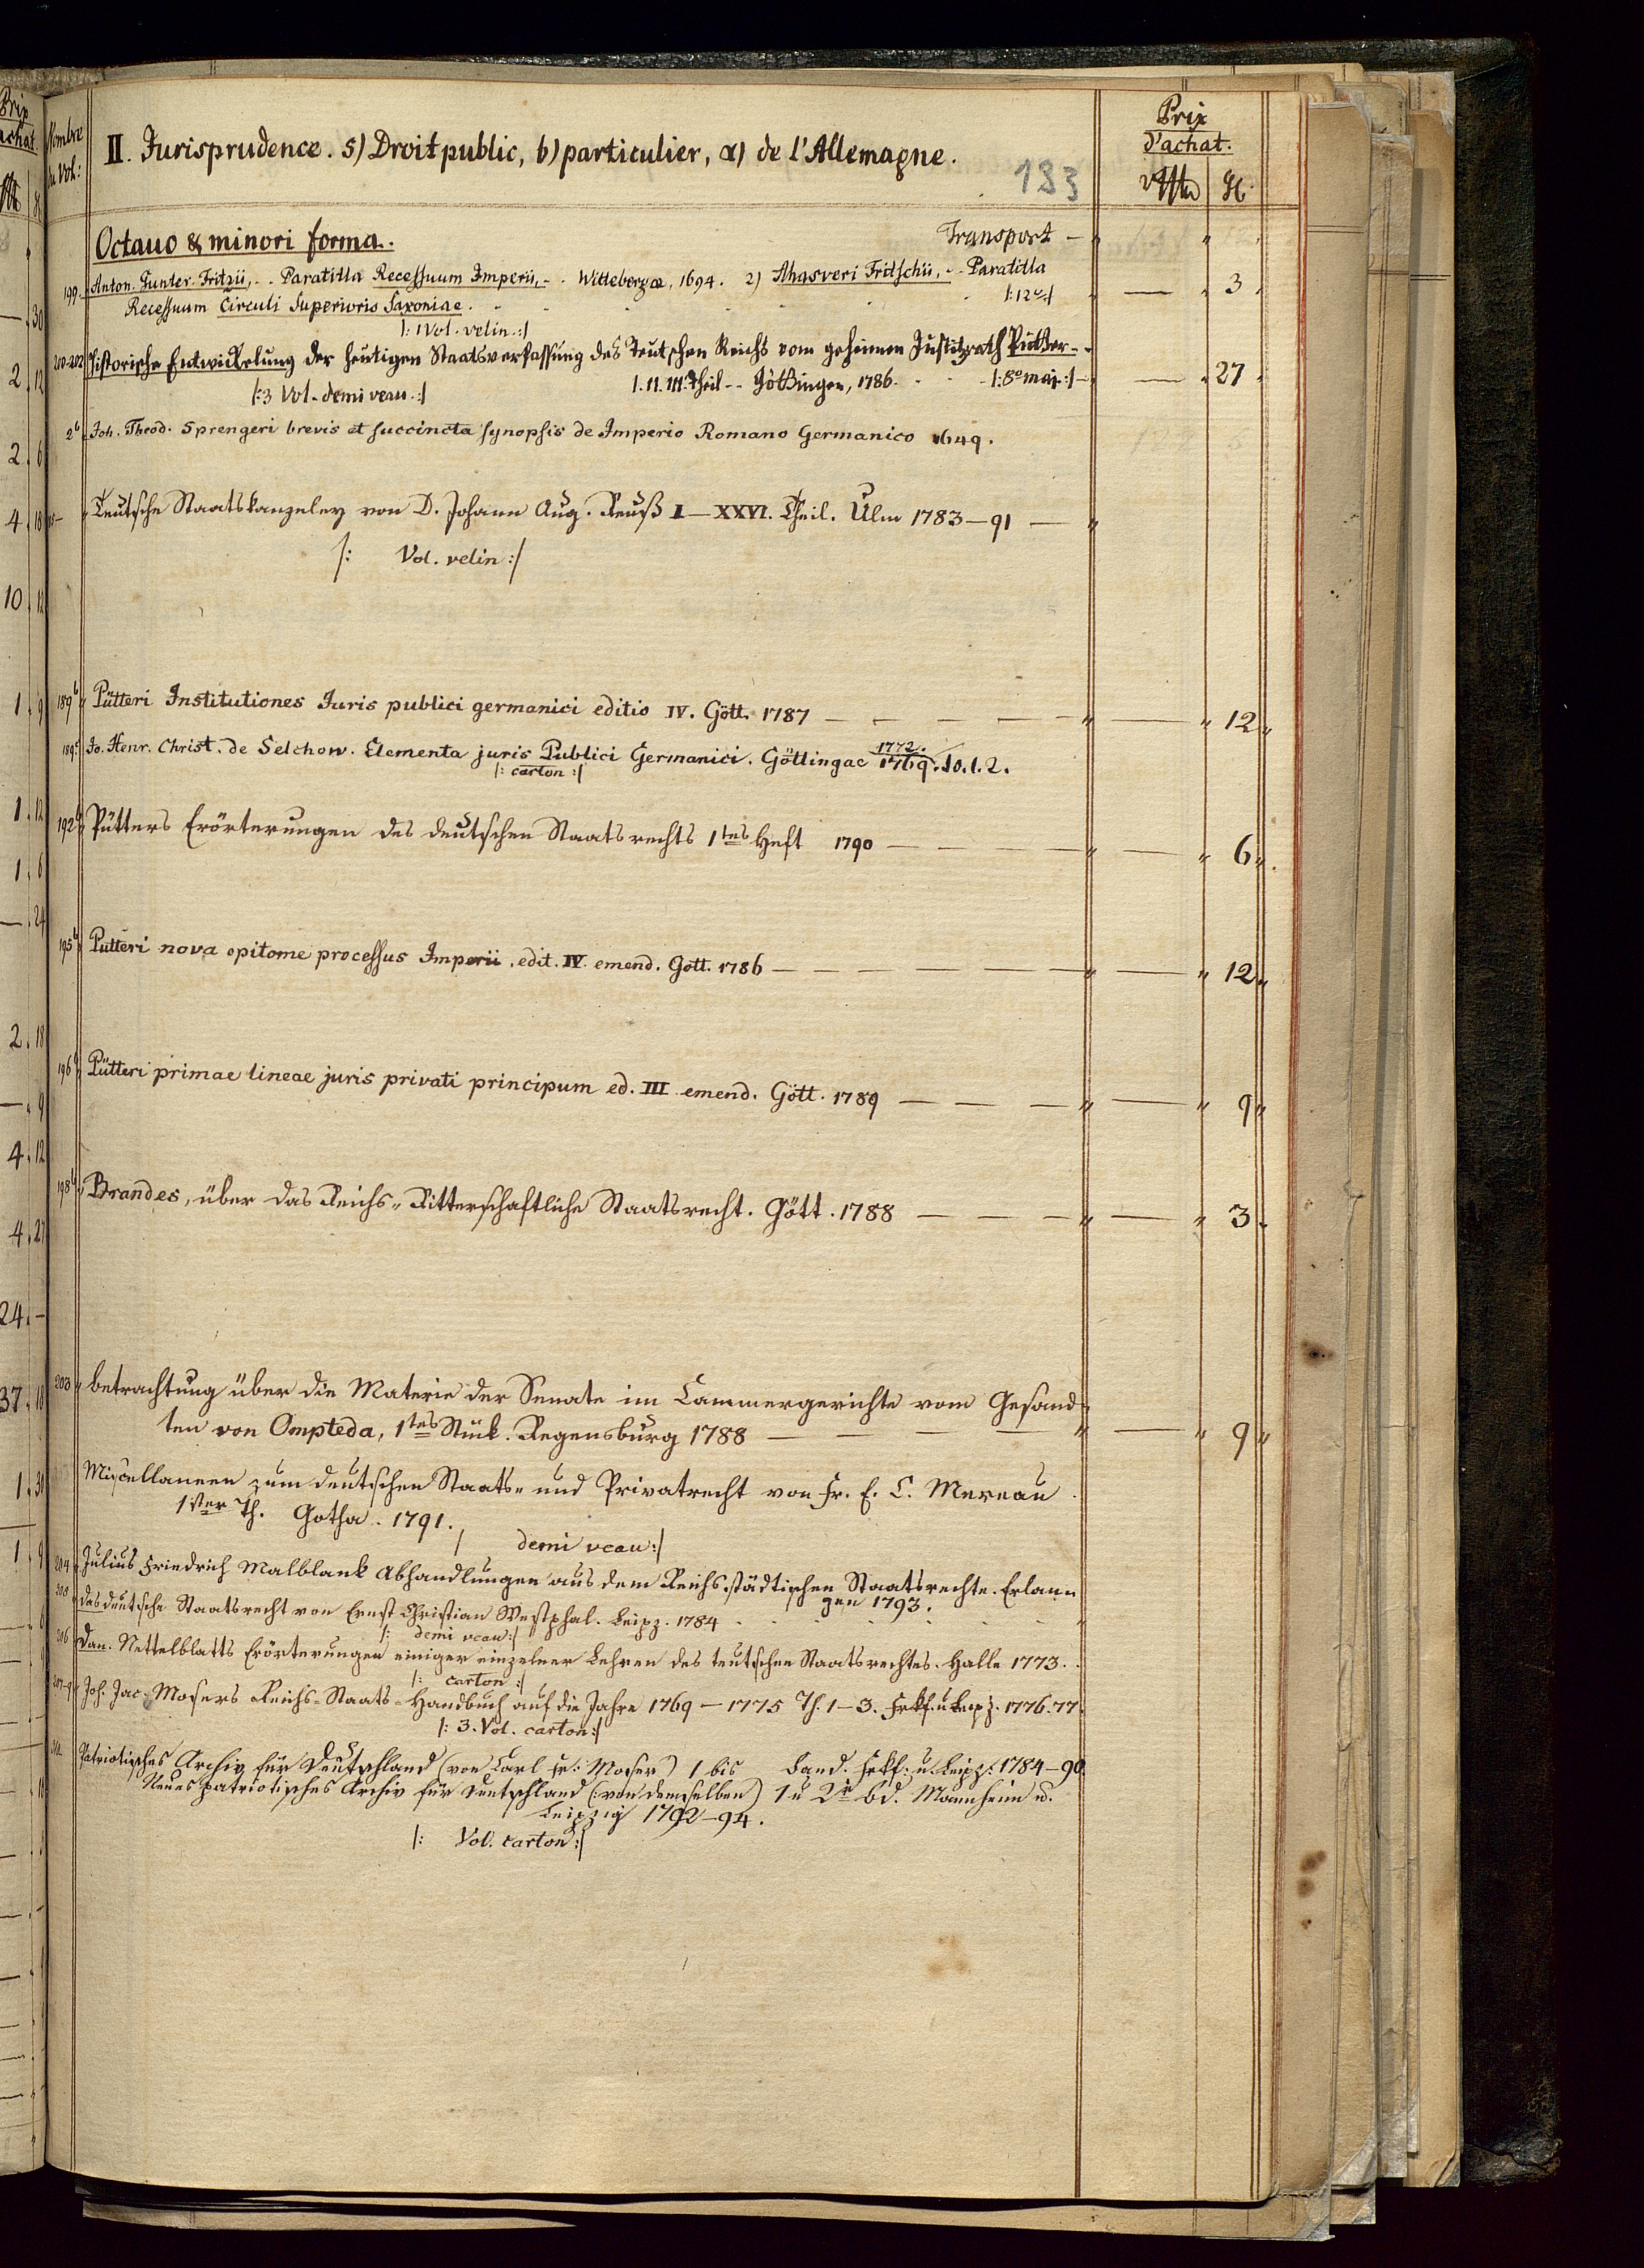 Nombre du Vol:
II. Jurisprudence. 5) Droit public, b) particulier, α) de l'Allemagne.
183
Prix d'achat.
Octauo & minori forma. Transport —
199. Anton. Gunter. Fritzii, - - Paratitla Recessuum Imperii, - - Wittebergæ, 1694. 2) Ahasveri Fritschii, - - Paratitla
Recessuum Circuli Superioris Saxoniae. |: 12º :| — 3
|: 1 Vol. velin. :|
200-202 Historische Entwickelung der heutigen Staatsverfassung des Teutschen Reichs vom geheimen Justitzrath Pütter - -
I. II. III. Theil - - Göttingen, 1786. |: 8º maj. :| — 27
|: 3 Vol. demi veau. :|
2b Joh. Theod. Sprengeri brevis et succincta synopsis de Imperio Romano Germanico 1649.
Teutsche Staatskanzeley von D. Johann Aug. Reuß I — XXVI. Theil. Ulm 1783 — 91 —
|: Vol. velin :|
189b Pütteri Institutiones Juris publici germanici editio IV. Gött. 1787 — — — — — 12
189c Jo. Henr. Christ. de Selchow. Elementa juris Publici Germanici. Göttingae 1772. 1769. 10.1.2.
|: carton :|
192b Pütters Erörterungen des deutschen Staatsrechts 1tes Heft 1790 — — — — 6
195b Putteri nova epitome processus Imperii. edit. IV. emend. Gott. 1786 — — — — — — 12
196b Pütteri primae lineae juris privati principum ed. III emend. Gött. 1789 — — — 9
198b Brandes, über das Reichs-Ritterschaftliche Staatsrecht. Gött. 1788 — — — 3
203 betrachtung über die Materie der Senate im Cammergerichte vom Gesand-
ten von Ompteda, 1tes Stück. Regensburg 1788 — — — — 9
Miscellaneen zum deutschen Staats- und Privatrecht von Fr. E. C. Mereau
1ster Th. Gotha. 1791.
| demi veau :|
204 Julius Friedrich Malblank Abhandlungen aus dem Reichsstädtischen Staatsrechte. Erlan-
gen 1793.
das deutsche Staatsrecht von Ernst Christian Westphal. Leipz. 1784
|: demi veau :|
206 Dan. Nettelblatts Erörterungen einiger einzelner Lehren des teutschen Staatsrechtes. Halle 1773.
|: carton :|
207-9 Joh. Jac. Mosers Reichs-Staats-Handbuch auf die Jahre 1769 — 1775 Th. 1 — 3. Frkf. u Leipz. 1776. 77.
|: 3. Vol. carton :|
Patriotisches Archiv für Deutschland (von Carl Fr. Moser) 1 bis Band. Frkf. u. Leipz. 1784 — 90
Neues patriotisches Archiv für Deutschland (: von demselben) 1 u 2r Bd. Mannheim u.
Leipzig 1792 — 94.
|: Vol. carton :|